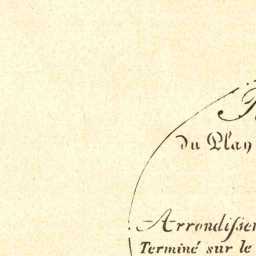 du Plan
Arrondissem
Terminé sur le